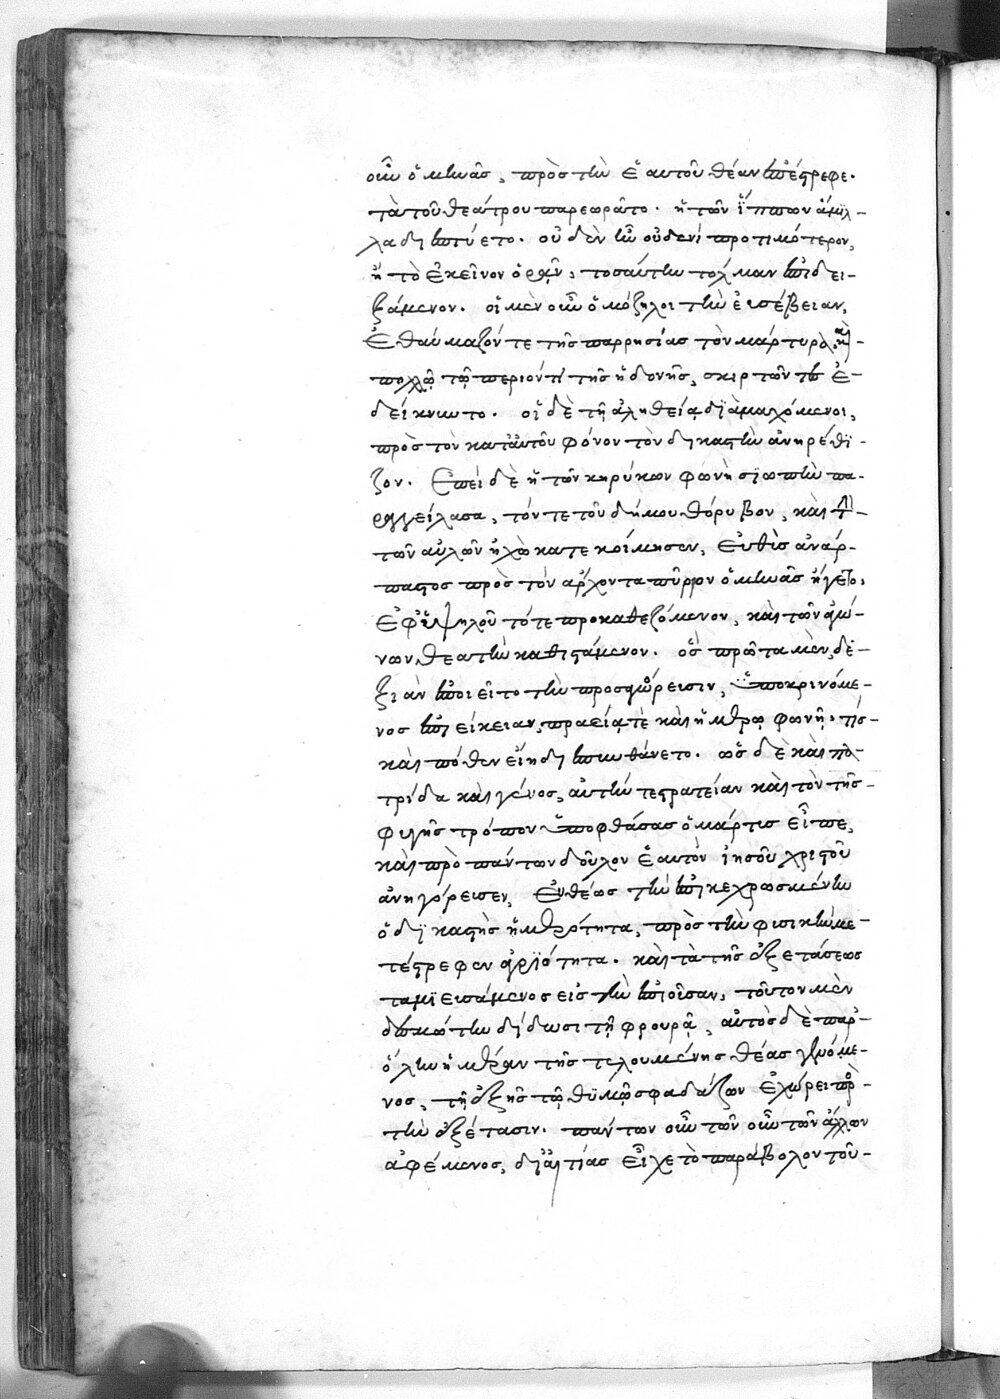 οὖν ὁ μηνᾶς, πρὸς τὴν ἑαυτοῦ θέαν ἐπέστρεφε.
τὰ τοῦ θεάτρου παρεωρᾶτο. ἡ τῶν ἵππων ἅμιλ-
λα διεπτύετο. οὐδὲν ἦν οὐδενὶ προτιμότερον,
ἢ τὸ ἐκεῖνον ὁρᾶν, τοσαύτην τόλμαν ἐπιδει-
ξάμενον. οἱ μὲν οὖν ὁμόζηλοι τὴν εὐσέβειαν,
ἐθαύμαζόν τε τῆς παρρησίας τὸν μάρτυρα, καὶ
πολλῷ τῷ περιόντι τῆς ἡδονῆς, σκιρτῶντες ἐ-
δείκνυντο. οἱ δὲ τῇ ἀληθείᾳ διαμαχόμενοι,
πρὸς τὸν κατ' αὐτοῦ φόνον τὸν δικαστὴν ἀνηρέθι-
ζον. Ἐπεὶ δὲ ἡ τῶν κηρύκων φωνὴ σιωπὴν πα-
ραγγείλασα, τόν τε τοῦ δήμου θόρυβον, καὶ τὴν
τῶν αὐλῶν ἠχὼ κατεκοίμησεν, εὐθὺς ἀνάρ-
παστος πρὸς τὸν ἄρχοντα πῦρρον ὁ μηνᾶς ἤγετο,
ἐφ' ὑψηλοῦ τότε προκαθεζόμενον, καὶ τῶν ἀγώ-
νων θεατὴν καθιστάμενον. ὃς πρῶτα μὲν, δε-
ξιὰν ἐποιεῖτο τὴν προσαγόρευσιν, ὑποκρινόμε-
νος ἐπιείκειαν, πραείᾳ τὲ καὶ ἡμέρῳ φωνῇ, τίς
καὶ πόθεν εἴη διεπυνθάνετο. ὡς δὲ καὶ πα-
τρίδα καὶ γένος, αὐτήν τε στρατείαν καὶ τὸν τῆς
φυγῆς τρόπον ὑποφθάσας ὁ μάρτυς εἶπε,
καὶ πρὸ πάντων δοῦλον ἑαυτὸν ἰησοῦ χριστοῦ
ἀνηγόρευσεν, εὐθέως τὴν ἐπικεχρωσμένην
ὁ δικαστὴς ἡμερότητα, πρὸς τὴν φυσικὴν με-
τέστρεφεν ἀγριότητα. καὶ τὰ τῆς ἐξετάσεως
ταμιευσάμενος εἰς τὴν ἐπιοῦσαν, τοῦτον μὲν
δεσμώτην δίδωσι τῇ φρουρᾷ, αὐτὸς δὲ παρ'
ὅλην ἡμέραν τῆς τελουμένης θέας γενόμε-
νος, τῇ ἑξῆς τῷ θυμῷ σφαδάζων ἐχώρει πρὸς
τὴν ἐξέτασιν. πάντων οὖν τῶν οὖν τῶν ἄλλων
ἀφέμενος, δι' αἰτίας εἶχε τὸ παράβολον τοῦ-